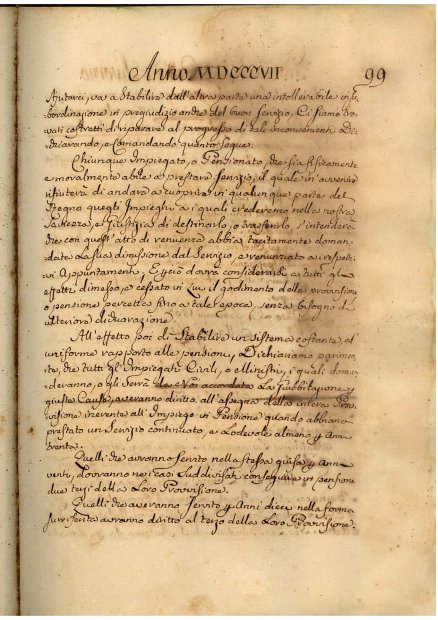 Anno MDCCCVII 99
Ajutarci, va a Stabilire dall'altra parte una intollerabile insu
bordinazione in pregiudizio anche del buon servizio, Ci siamo tro
vati costretti di riparare al progresso di tali inconvenienti Di
chiarando, e Comandando quanto segue.
Chiunque Impiegato, o Pensionato, che sia fisicamente
e moralmente abile a prestare servizio, il quale in avvenire
rifiuterà di andare a cuoprire in qualunque parte del
Regno quegli Impieghi, a i quali crederemo nella nostra
Saviezza, e Giustizia di destinarlo, o trasferirlo, s'intenderà
che con quest'atto di renuenza abbia tacitamente doman
data la sua dimissione dal Servizio, e renunziato a i respetti
vi Appuntamenti, E ciò dovrà considerarsi a tutti gli
effetti dimesso, e cessato in lui il godimento della provvisione
o pensione percetta fino a tale epoca, senza bisogno di
ulteriore dichiarazione.
All'effetto poi di Stabilire un sistema costante, ed
uniforme rapporto alle pensioni, Dichiariamo parimen
te, che tutti gl'Impiegati Civili, o Ministri, i quali doman
deranno, e gli Verrà da Noi accordata La Giubbilazione p
giuste Cause, averanno diritto all'assegna della intera Prov
visione inerente all'Impiego in Pensione quando abbiano
prestato un Servizio continuato, e Lodevole almeno p Anni
trenta.
Quelli che avranno servito nella stessa guisa p Anni
venti, dovranno nei casi Suddivisati conseguire in pensione
due terzi della Loro Provvisione.
Quelli che averanno servito p Anni dieci nella forma
surriferita avranno diritto al terzo della Loro Provvisione.